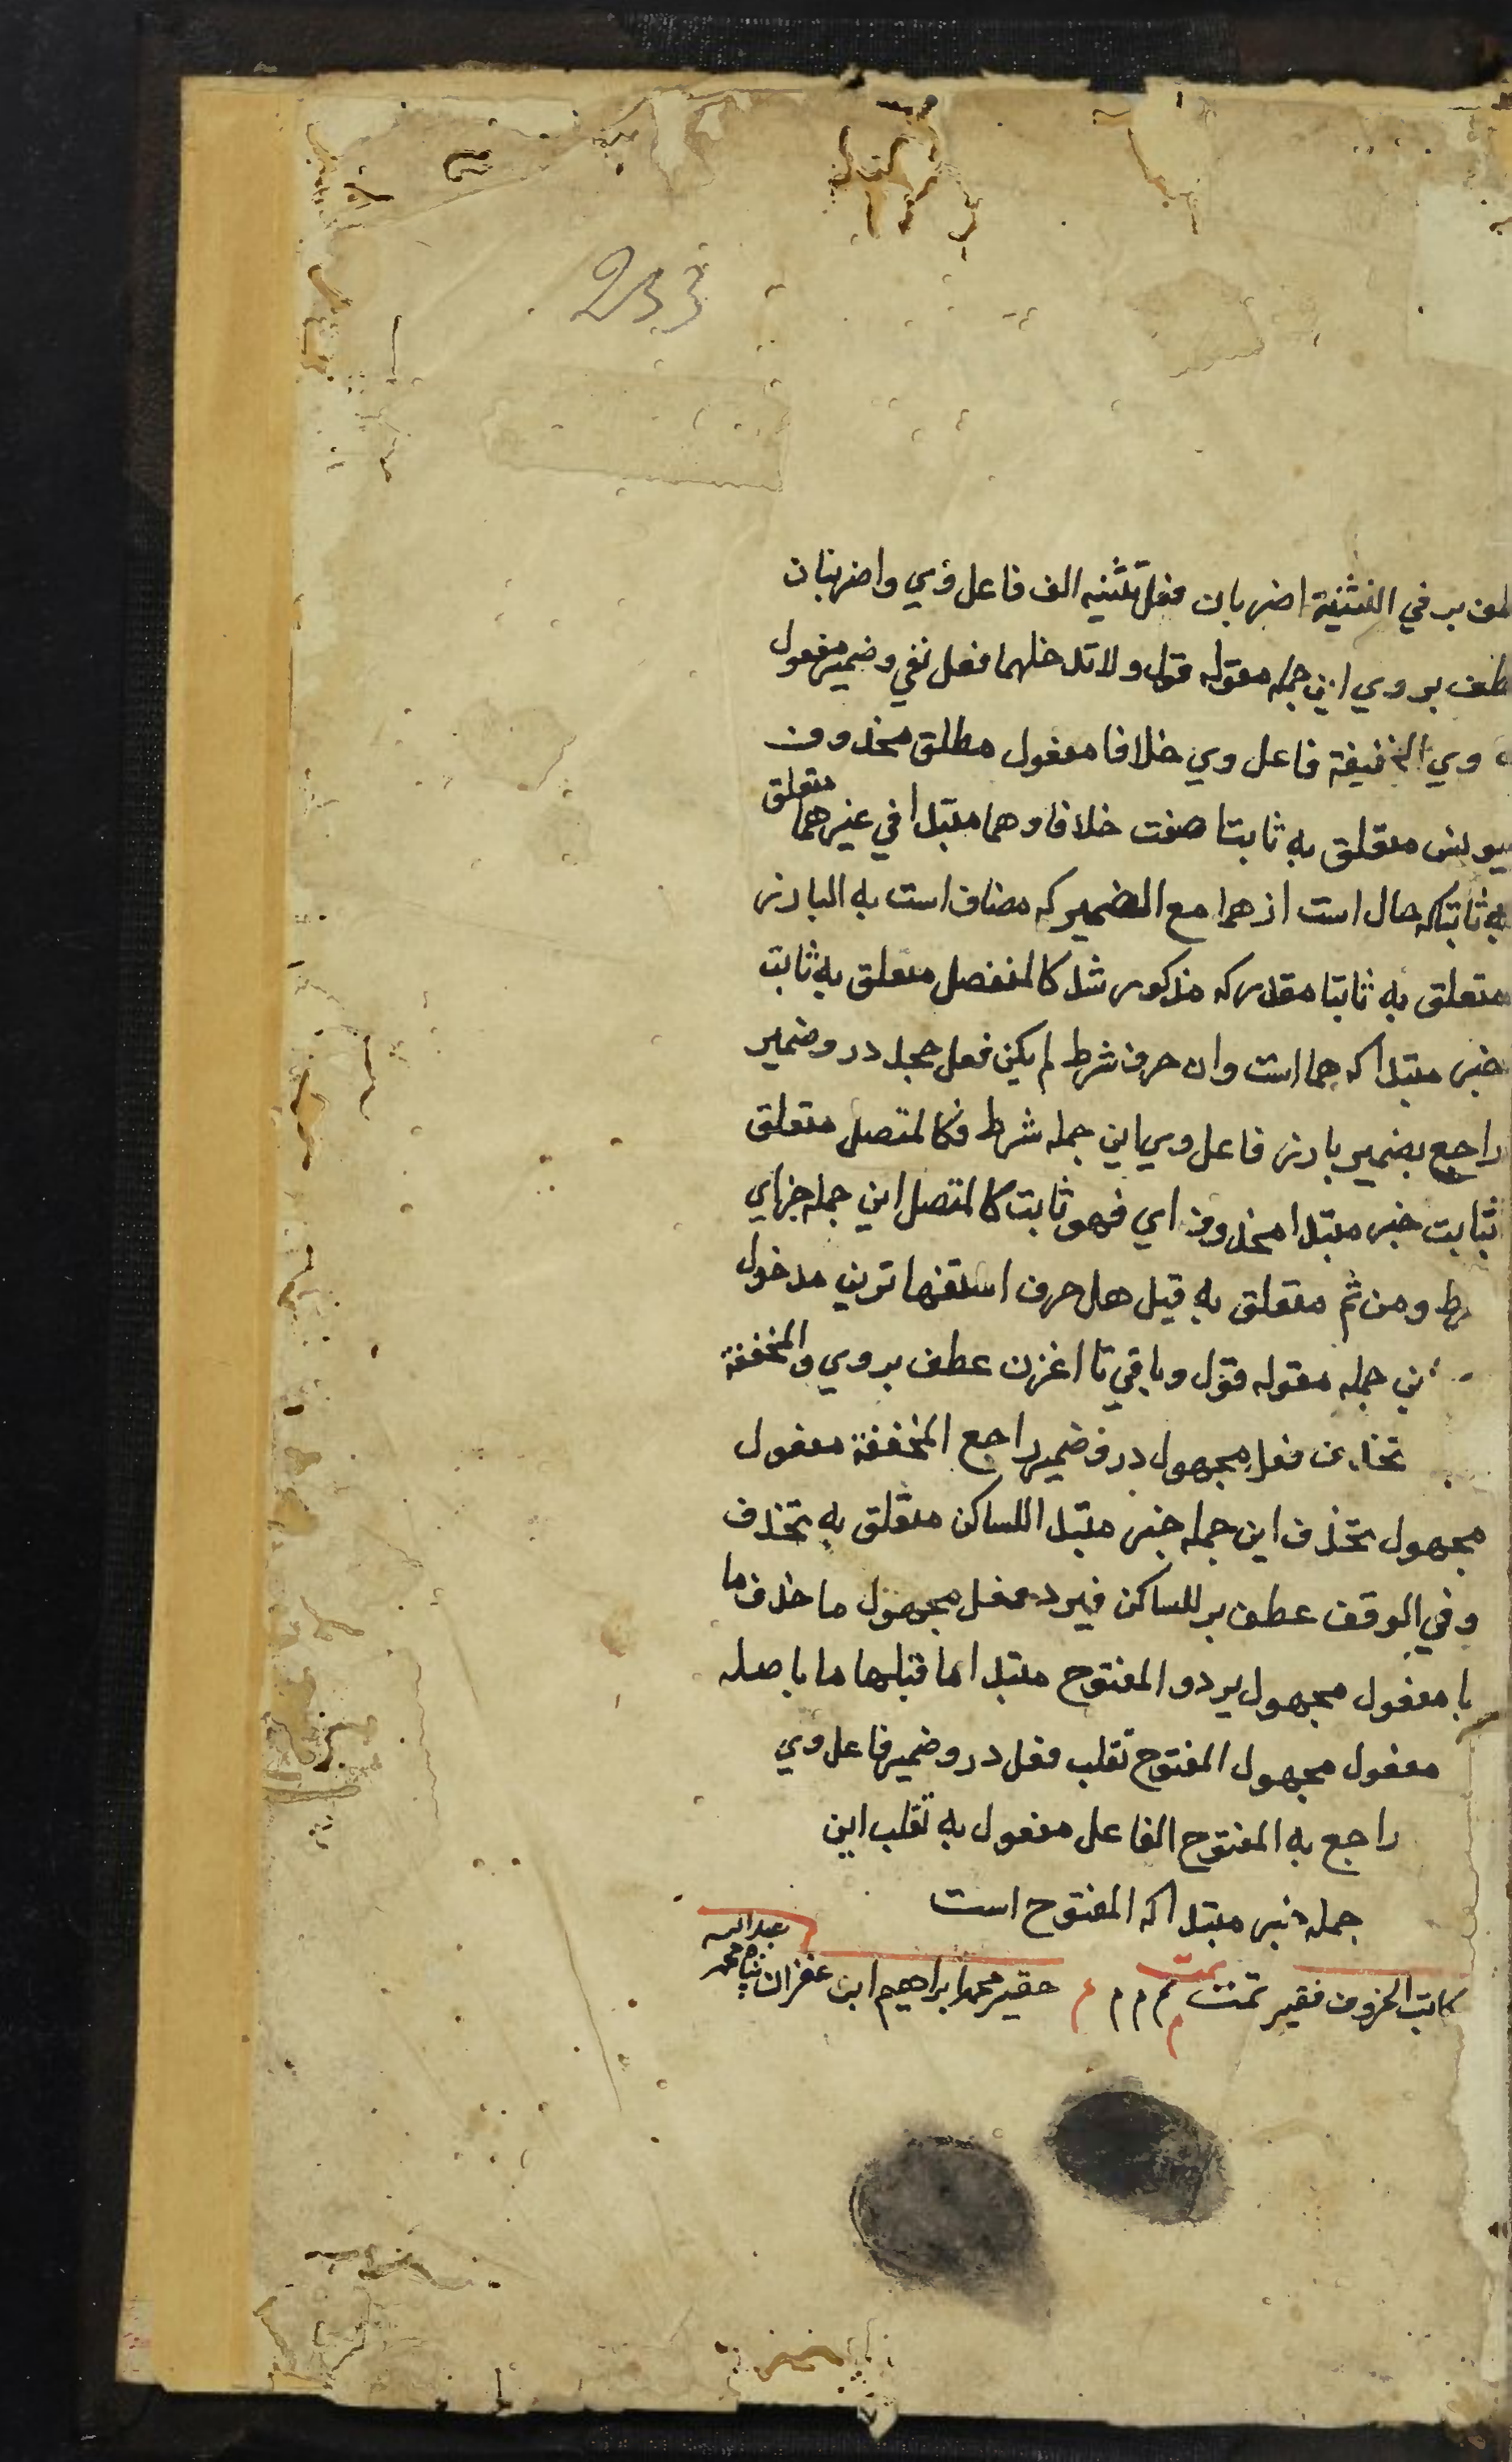 233
بر في التثنية اضربان فعل تثنيه الف فاعل وي واضربنان
عطف بر وي اين جمله مقوله قول ولا تدخلهما فعل نفي وضمير مفعول
وي الخفيفة فاعل وي خلافا مفعول مطلق محذوف
ليونس متعلق به ثابتا صفت خلافا وهما مبتدا في غيرهما متعلق
به ثابتا كه حال است از هما مع الضمير كه مضاف است به البارز
متعلق به ثابتا مقدر كه مذكور شد كالمنفصل متعلق به ثابت
خبر مبتدا كه هما است وان حرف شرط لم يكن فعل جحد در و ضمير
راجع بضمير بارز فاعل وي اين جمله شرط فكالمتصل متعلق
بثابت خبر مبتدا محذوف اي فهو ثابت كالمتصل اين جمله جزاي
شرط ومن ثم متعلق به قيل هل حرف استفهام ترين مدخول
اين جمله مقوله قول وباقي تا اغزن عطف بر وي والمخففة
تحذف فعل مجهول در و ضمير راجع المخففة مفعول
مجهول تحذف اين جمله خبر مبتدا للساكن متعلق به تحذف
وفي الوقف عطف بر للساكن فيرد فعل مجهول ما حذف ما
با مفعول مجهول يرد والمفتوح مبتدا ما قبلها ما با صله
مفعول مجهول المفتوح تقلب فعل در و ضمير فاعل وي
راجع به المفتوح الفا عل مفعول به تقلب اين
جمله خبر مبتدا كه المفتوح است
كاتب الحروف فقير تمت تمت م م م م م حقير محمد ابراهيم ابن غفران پناه محمد عبدالله